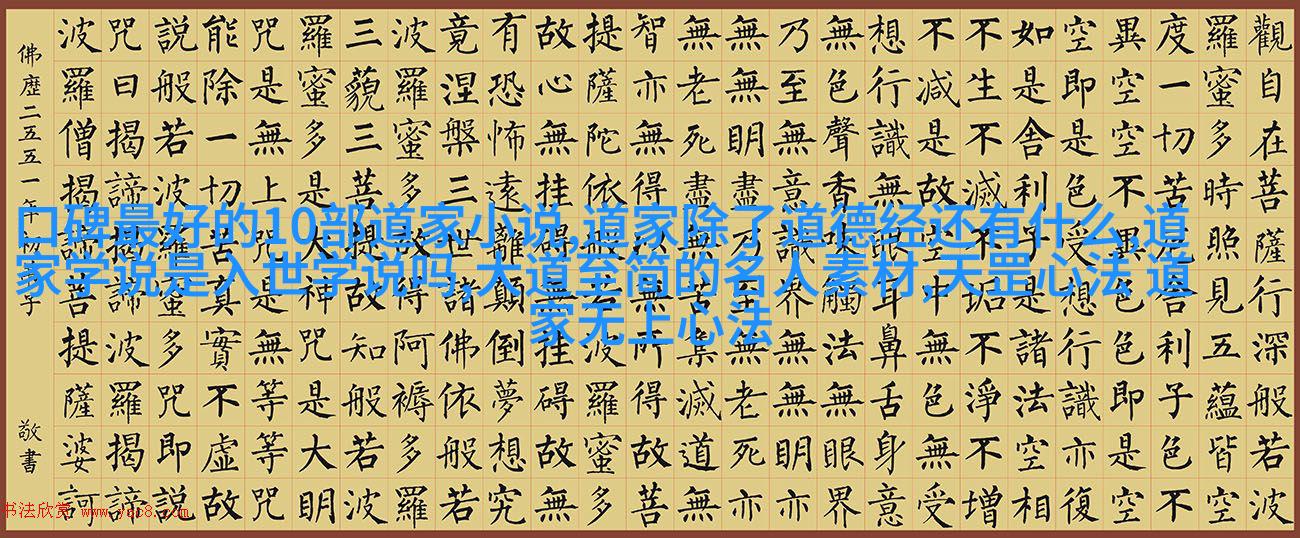 觀自在菩薩行深般若波
羅蜜多時照見五蘊皆空
度一切苦厄舍利子色不
異空空不異色色即是空
空即是色受想行識亦復
如是舍利子是諸法空相
不生不滅不垢不淨不增
不減是故空中無色無受
想行識無眼耳鼻舌身意
無色聲香味觸法無眼界
乃至無意識界無無明亦
無無明盡亦無無老死亦
無老死盡無苦集滅道無
智亦無得以無所得故菩
提薩陀依般若波羅蜜多
故心無挂礙無挂礙故無
有恐怖遠離顛倒夢想究
竟涅槃三世諸佛依般若
波羅蜜多故得阿褥多羅
三藐三菩提故知般若波
羅蜜多是大神咒是大明
咒是無上咒是無等等咒
能除一切苦真實不虛故
説般若波羅蜜多咒即説
咒曰揭諦揭諦波羅揭諦
波羅僧揭諦菩提薩婆訶
佛歷二五五一年 子 敬書
口碑最好的10部道家小说,道家除了道德经还有什么,道
家学说是入世学说吗,大道至简的名人素材,天罡心法 道
家无上心法
书法欣赏 www.yac8.com